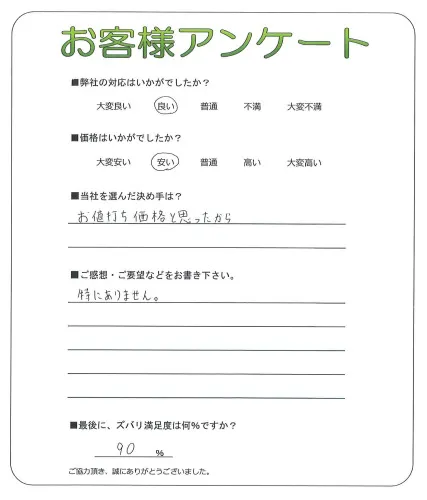 お客様アンケート
■弊社の対応はいかがでしたか？
大変良い 良い 普通 不満 大変不満
■価格はいかがでしたか？
大変安い 安い 普通 高い 大変高い
■当社を選んだ決め手は？
お値打ち価格と思ったから
■ご感想・ご要望などをお書き下さい。
特にありません。
■最後に、ズバリ満足度は何％ですか？
90 ％
ご協力頂き、誠にありがとうございました。